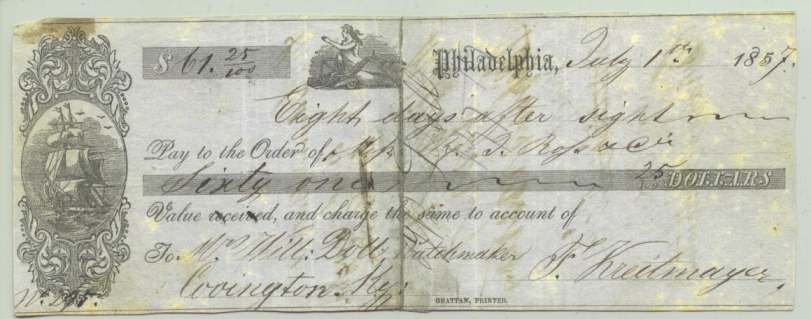 $ 61. 25/100
Philadelphia, July 1st 1857.
Eight days after sight
Pay to the Order of Mess J. Ross & Co
Sixty one 25/100 DOLLARS
Value received, and charge the same to account of
To Mr Will: Dott, Watchmaker F. Kreitmayer,
Covington Ky:
No.
GRATTAN, PRINTER.